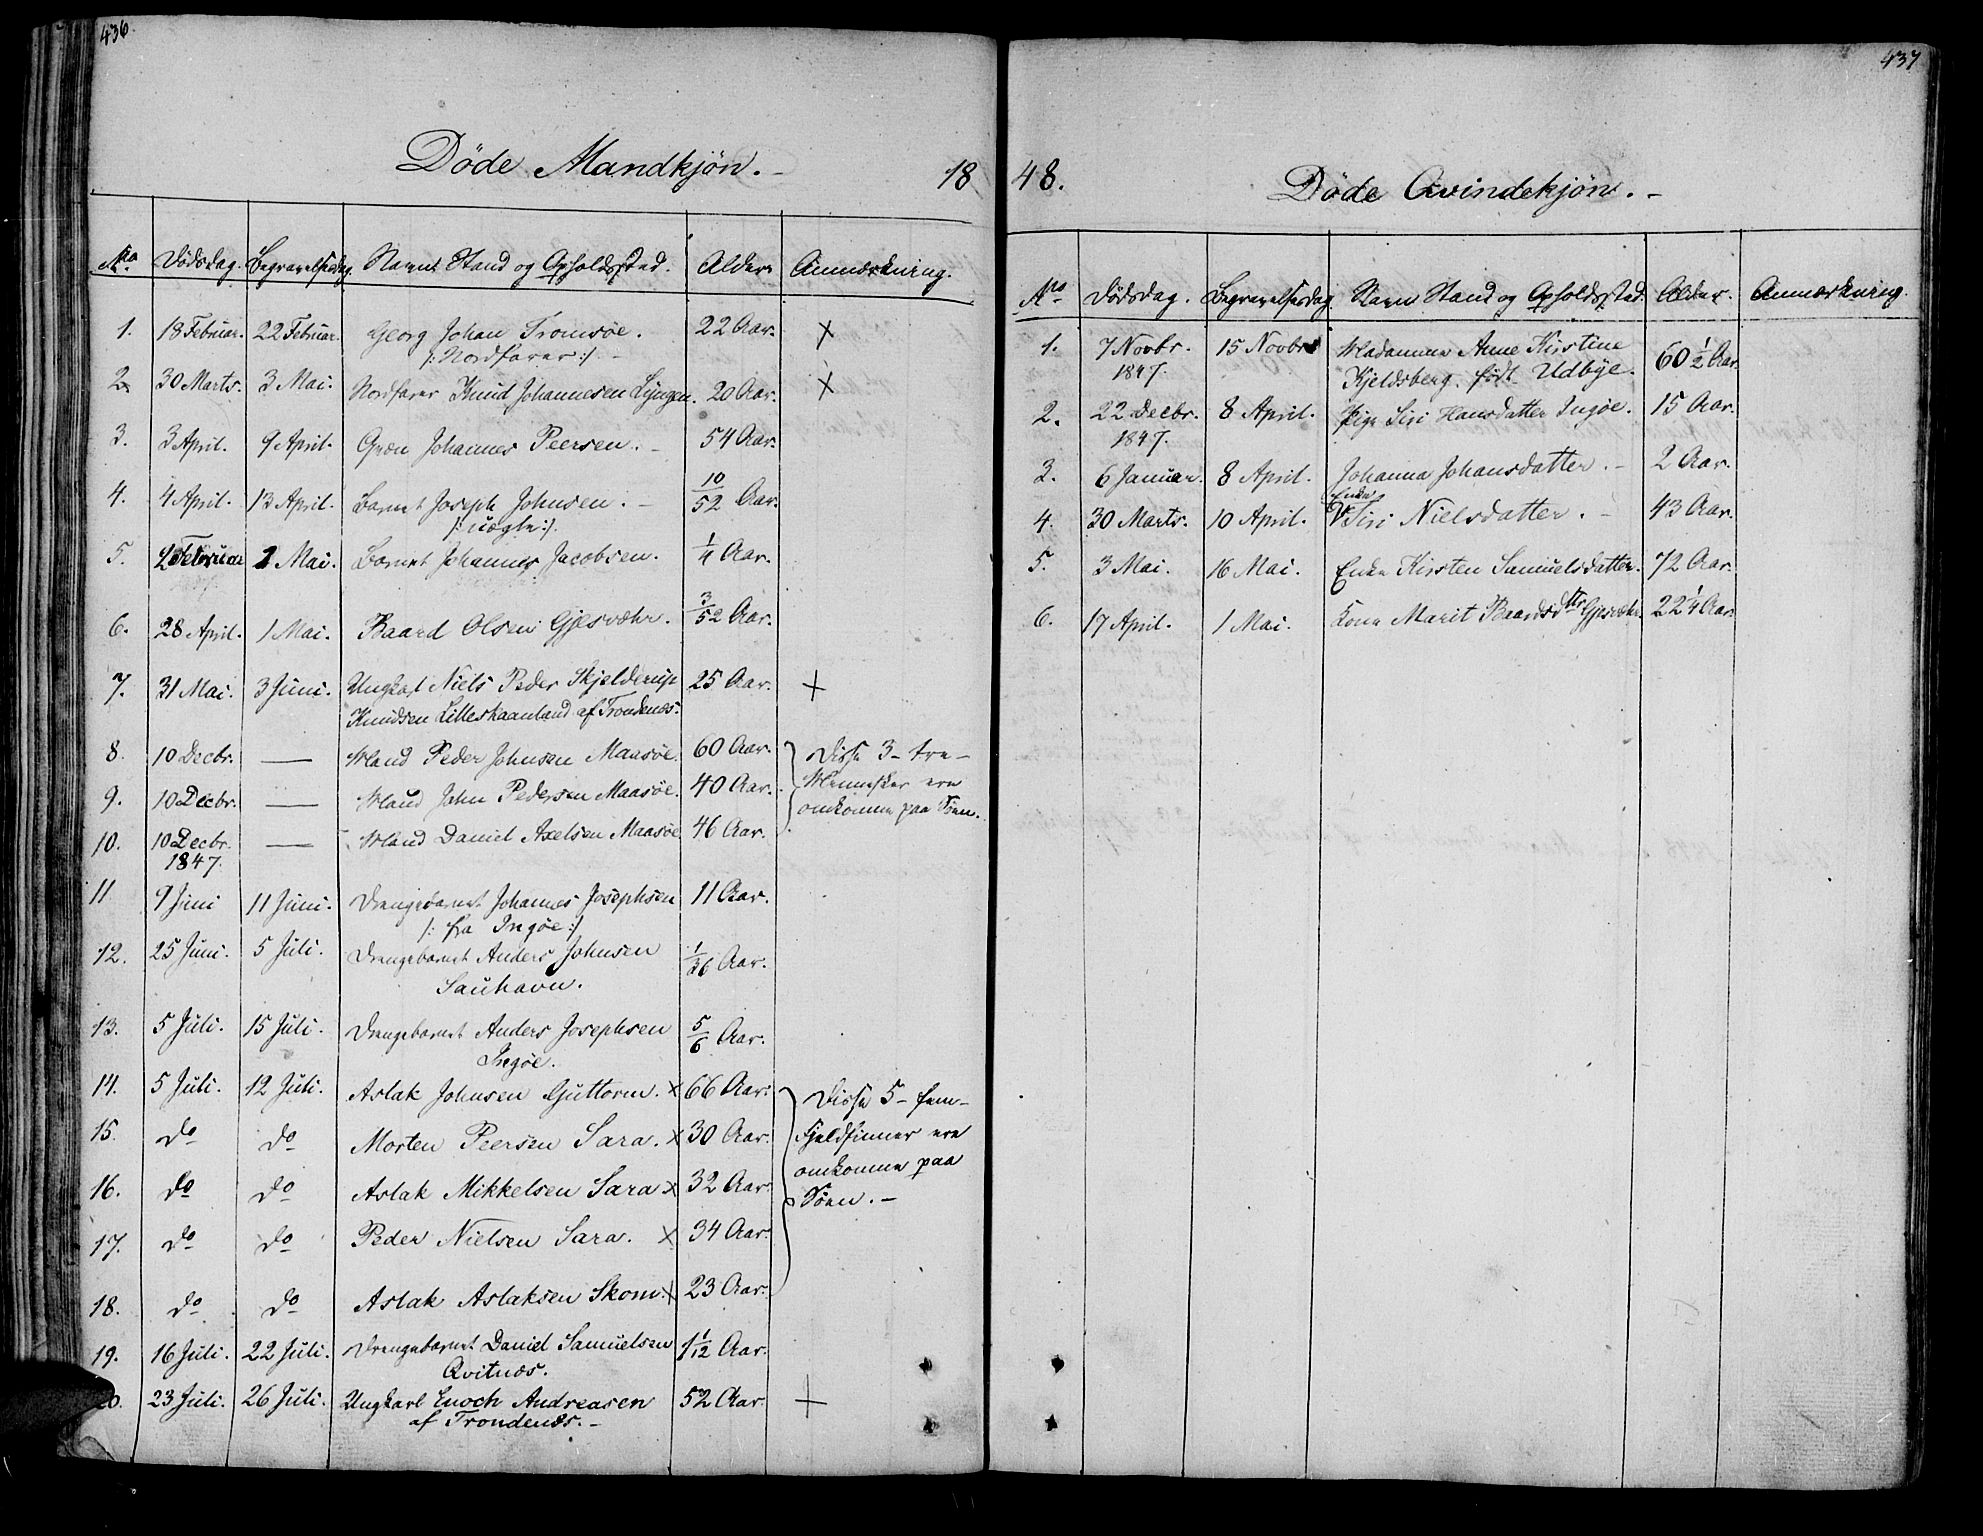 436
Døde Mandkjøn. 18
No Dødsdag. Begravelsesdag Navn Stand og Opholdssted. Alder Anmærkning.
1. 18 Februar. 22 Februar. Georg Johan Tromsøe. 22 Aar. X
/: Nordfarer :/
2. 30 Marts. 3 Mai. Nordfarer Knud Johannesen Lyngen. 20 Aar. X
3. 3 April. 9 April. Johannes Peersen. 54 Aar.
4. 4 April. 13 April. Barnet Joseph Johnsen. 10/52 Aar.
/: uægte :/.
5. 2 Februar 1 Mai. Barnet Johannes Jacobsen. 1/4 Aar.
6. 28 April. 1 Mai. Baard Olsen Gjesvæhr. 3/52 Aar.
7. 31 Mai. 3 Juni. Ungkarl Niels Peder Skjelderup 25 Aar. +
Knudsen Lilleskaanland af Trondenæs.
8. 10 Decbr. — Mand Peder Johnsen Maasøe. 60 Aar. Disse 3- tre-
9. 10 Decbr. — Mand John Pedersen Maasøe. 40 Aar. Mennesker ere
omkomne paa Søen.
10. 10 Decbr. — Mand Daniel Axelsen Maasøe 46 Aar.
1847.
11 9 Juni 11 Juni. Drengebarnet Johannes Josephsen 11 Aar.
/: fra Ingøe :/
12. 25 Juni. 5 Juli. Drengebarnet Anders Johnsen 1/36 Aar.
Sauhavn.
13. 5 Juli. 15 Juli. Drengebarnet Anders Josephsen 5/6 Aar.
Ingøe.
14. 5 Juli. 12 Juli. Aslak Johnsen Guttorm. X 66 Aar. Disse 5- fem-
15. do do Morten Peersen Sara. X 30 Aar. Fjeldfinner ere
omkomne paa
16. do do Aslak Mikkelsen Sara X 32 Aar. Søen.-
17. do do Peder Nielsen Sara. X 34 Aar.
18. do do Aslak Aslaksen Skom. X 23 Aar.
19. 16 Juli. 22 Juli. Drengebarnet Daniel Samuelsen 1 1/12 Aar.
Qvitnæs.
20. 23 Juli. 26 Juli. Ungkarl Enoch Andreasen 52 Aar. +
af Trondenæs.-
437
48. Døde Qvindekjøn.-
No Dødsdag. Begravelsesdag Navn Stand og Opholdssted. Alder. Anmærkning.
1. 7 Novbr. 15 Novbr Madamme Anne Kirstine 60 1/2 Aar.
1847. Kjeldsberg. født Udbye.
2. 22 Decbr. 8 April. Pige Siri Hansdatter Ingøe. 15 Aar.
1847.
3. 6 Januar. 8 April. Johanna Johansdatter.- 2 Aar.
Enke
4. 30 Marts. 10 April. Siri Nielsdatter.- 43 Aar.
5. 3 Mai. 16 Mai. Enke Kirsten Samuelsdatter. 72 Aar.
6. 17 April. 1 Mai. Kone Marit Baardsdtr Gjesvæhr. 22 1/4 Aar